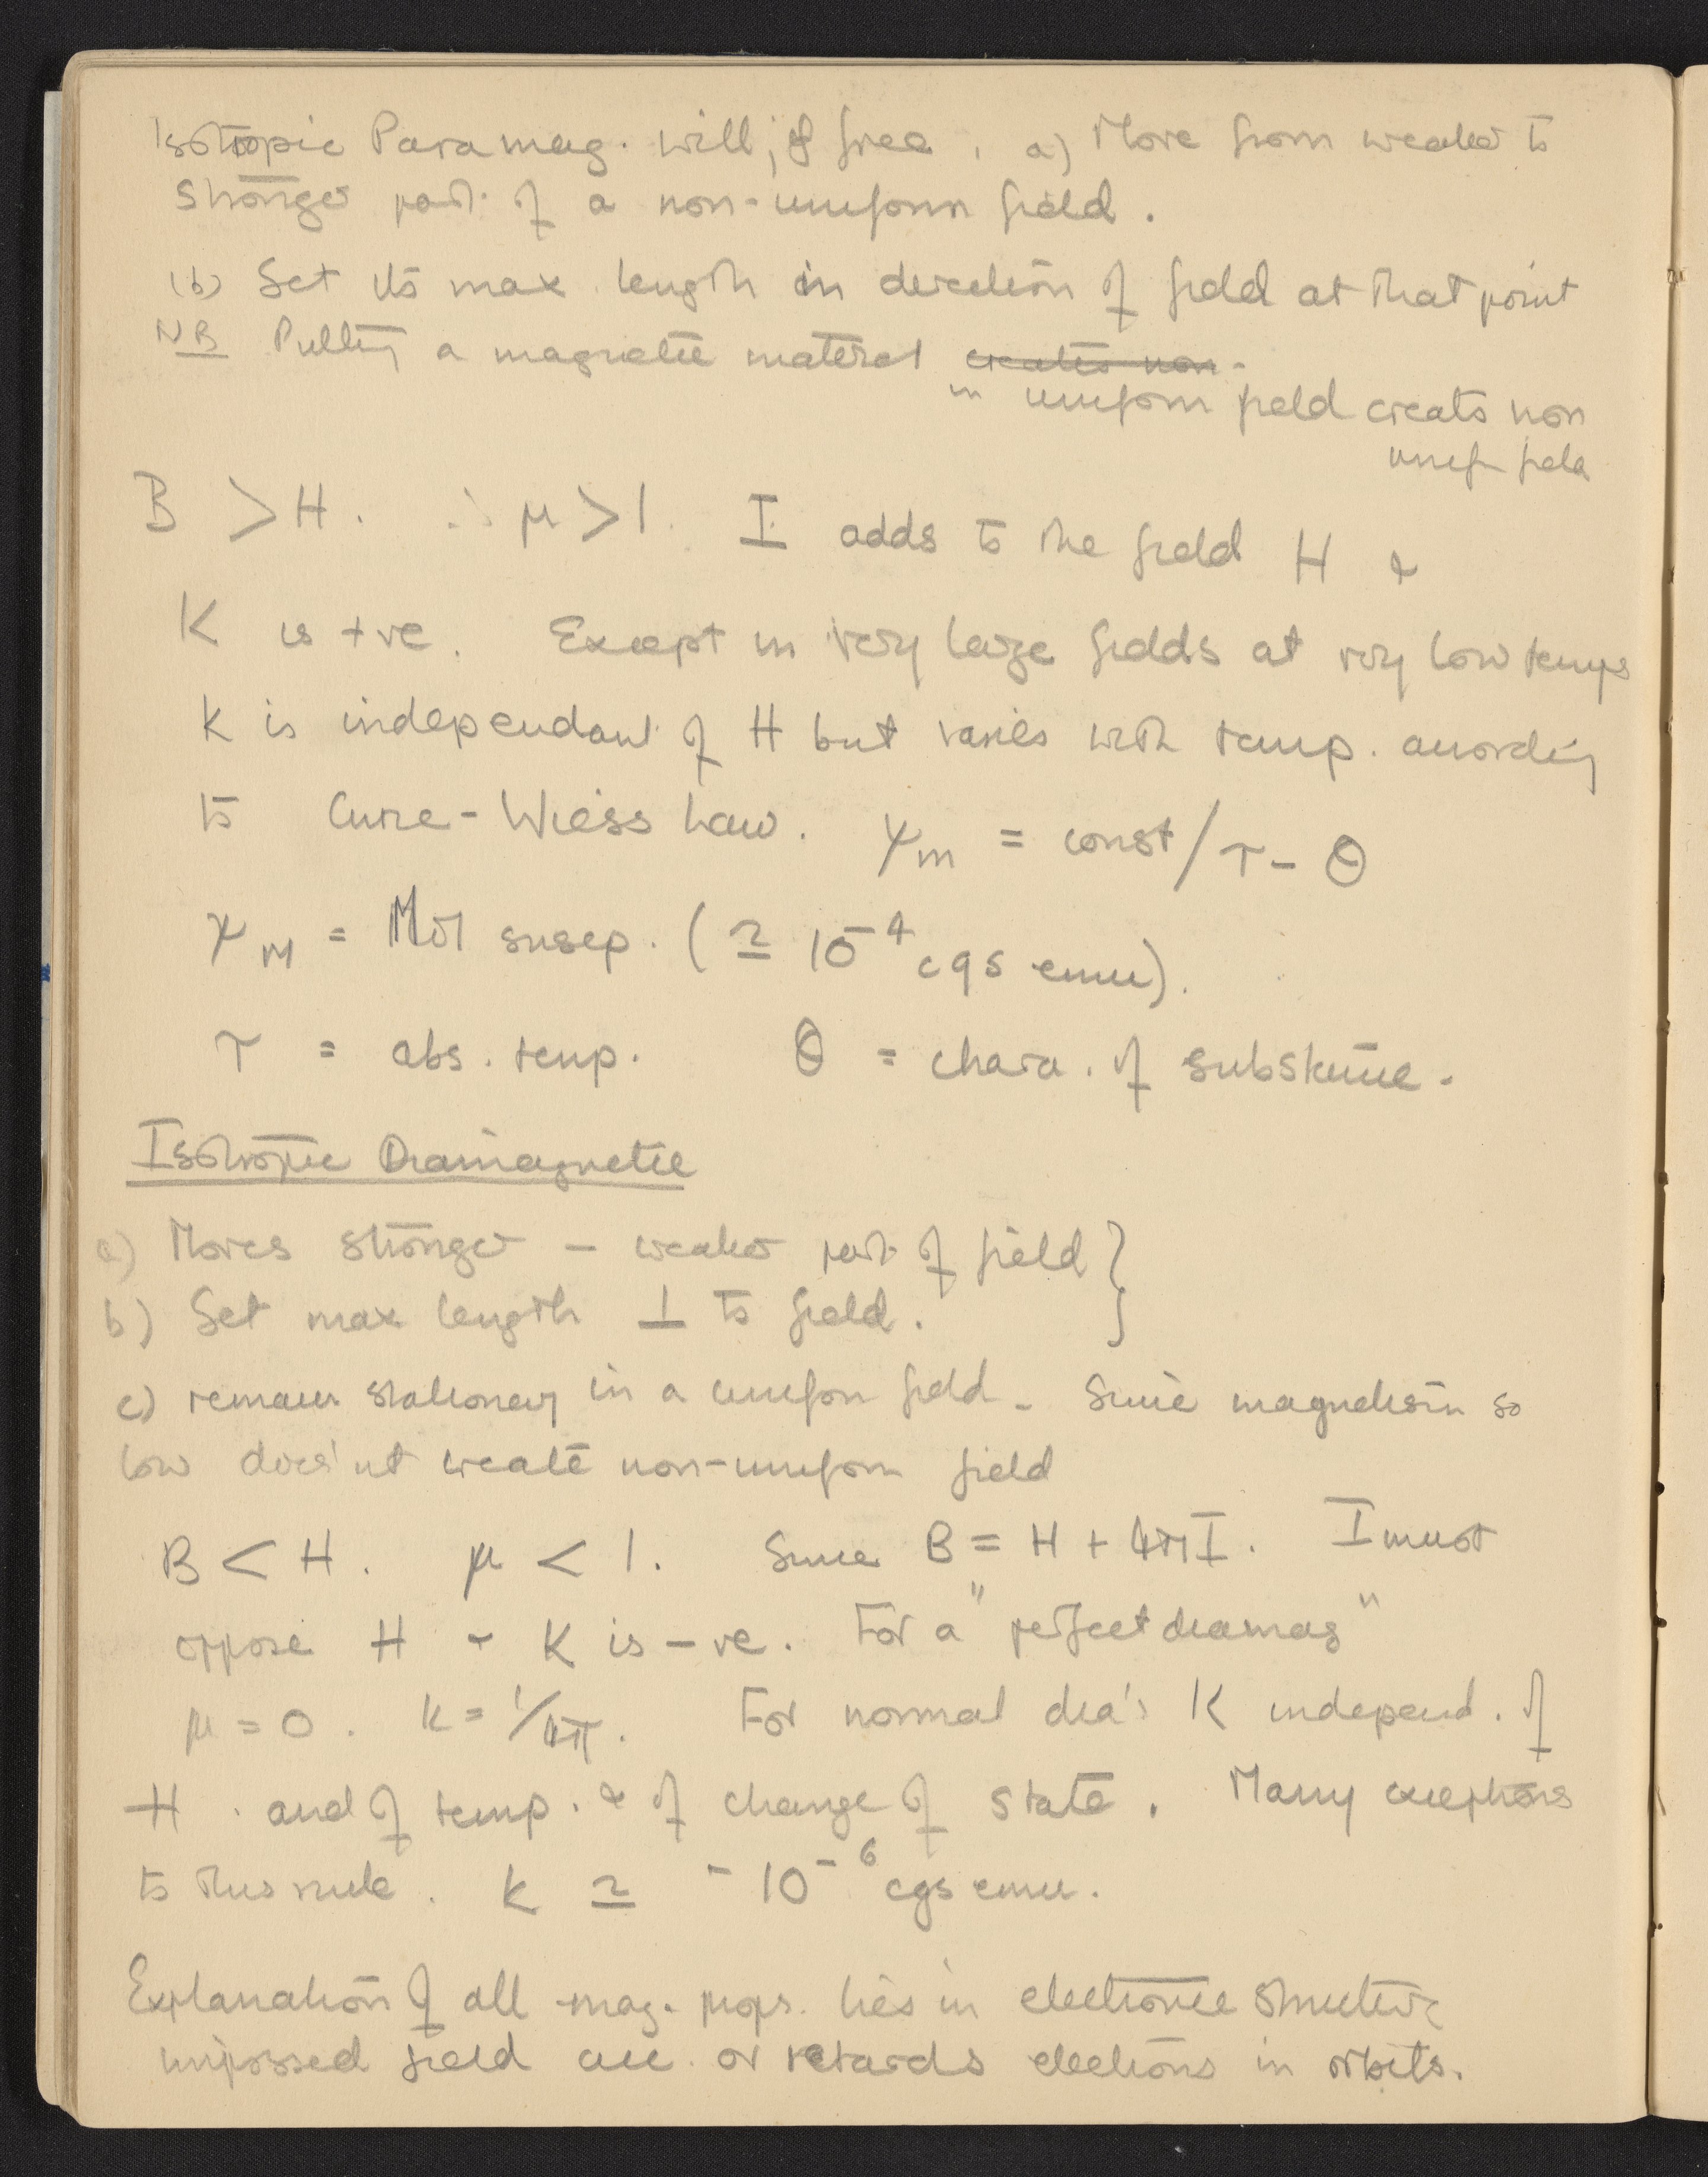 Isotropic Paramag. will, if free, a) Move from weaker to
stronger part of a non-uniform field.
(b) Set its max length in direction of field at that point
NB Putting a magnetic material creates non-
in uniform field creats non
unif field
B > H. ∴ μ > 1. I adds to the field H &
K is +ve. Except in very large fields at very low temps
K is independant of H but varies with temp. according
to Curie-Wiess Law. χm = const/T-θ
χM = Mol suscep. (≃ 10⁻⁴ cgs emu).
T = abs. temp. θ = chara. of substance.
Isotropic Diamagnetic
a) Moves stronger - weaker part of field }
b) Set max length ⊥ to field.
c) remain stationary in a uniform field - Since magnetism so
low does'nt create non-uniform field
B < H. μ < 1. Since B = H + 4πI. I must
oppose H & K is -ve. For a "perfect diamag"
μ = 0. k = 1/4π. For normal dia's K independ. of
H. and of temp. & of change of state. Many exceptions
to this rule. K ≃ -10⁻⁶ cgs emu.
Explanation of all mag. props. lies in electronic structure
imposed field acc. or retards electrons in orbits.